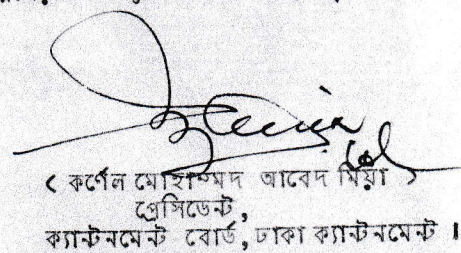 ( কর্ণেল মোহাম্মদ আবেদ মিয়া )
প্রেসিডেন্ট,
ক্যান্টনমেন্ট বোর্ড, ঢাকা ক্যান্টনমেন্ট ।